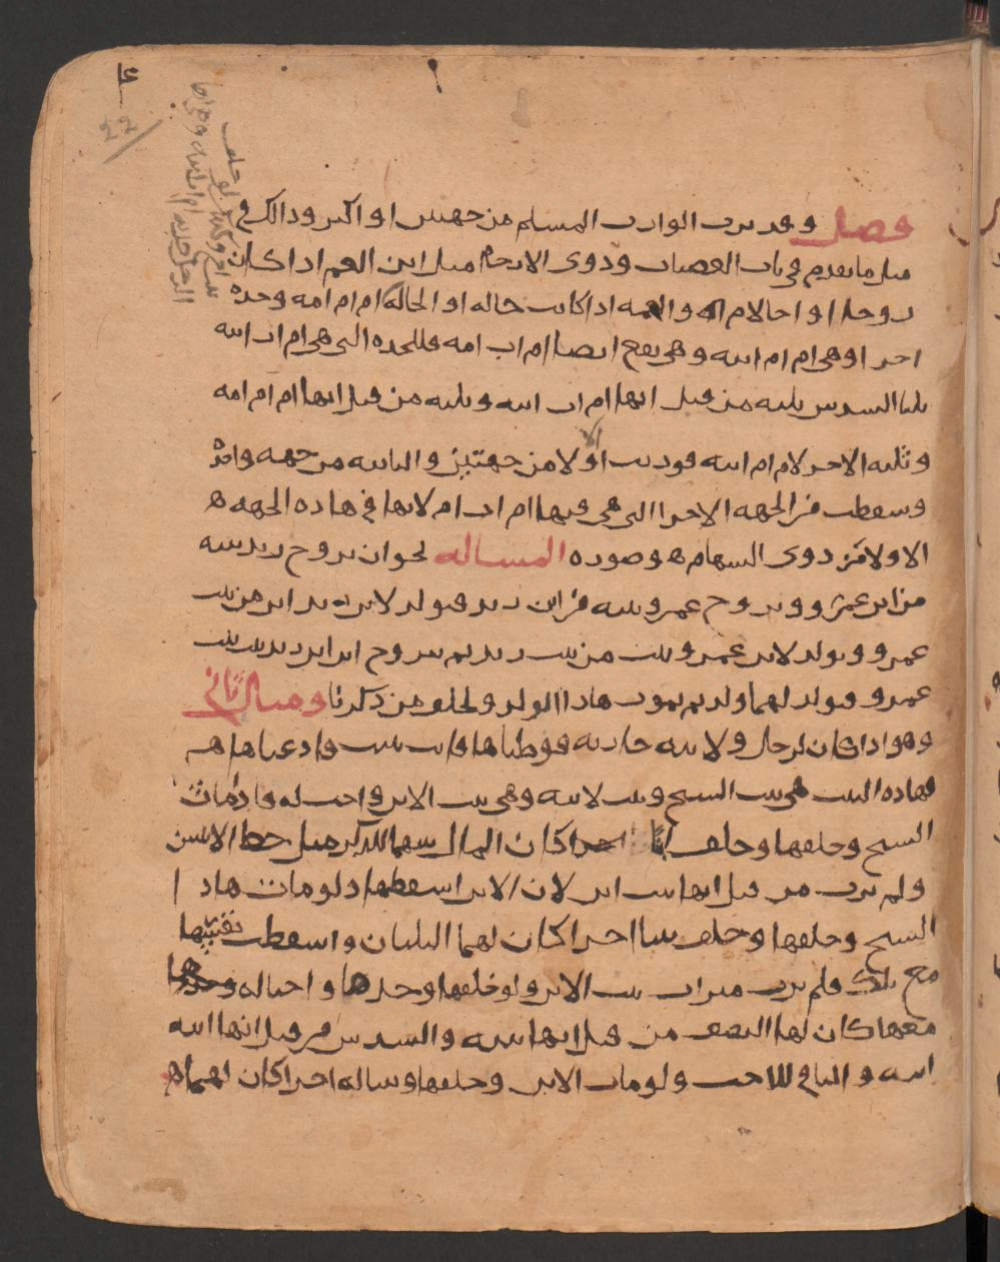 فصل وقد يرث الوارث المسلم من جهتين او اكثر وذالك في
مثل ما تقدم في باب العصبات وذوي الارحام مثل ابن العم اذا كان
زوجا او اخا لام او العمه اذا كانت خاله او الخاله ام ام امه وحده
اخرا وهي ام ام ابيه وهي تقع ايضا ام اب امه فللجده التي هي ام اب ابيه
ثلثا السدس ثلثه من قبل انها ام اب ابيه وثلثه من قبل انها ام ام امه
وثلثه الاخر لام ام ابيه فورثت اولا من جهتين والثانيه من جهه واحده
وسقطت من الجهه الاخرا التي هي فيها ام اب ام لانها في هاذه الجهه ه
الاولا من ذوي السهام ه وصورة المساله نحو ان يزوج زيد بنته
من ابن عمرو ويزوج عمرو بنته من ابن زيد فيولد لابن زيد ابن من بنت
عمرو ويولد لابن عمرو بنت من بنت زيد ثم يتزوج ابن ابن زيد ببنت بنت
عمرو فيولد لهما ولد ثم يموت هاذا الولد ويخلف من ذكرنا ومثال ثاني
وهو اذا كان لرجل ولابنه جاريه فوطياها فاتت ببنت وادعياها معا
فهاذه البنت هي بنت الشيخ وبنت لابنه وهي بنت الابن واخت له فاذا مات
الشيخ وخلفها وخلف ابنا اخرا كان المال بينهما للذكر مثل حظ الانثيين
ولم ترث من قبل انها بنت ابن لان الابن اسقطها ولو مات هاذا
الشيخ وخلفها وخلف بنتا اخرا كان لهما الثلثان واسقطت نفسها
مع تلك فلم ترث ميراث بنت الابن ولو خلفها وحدها واختا له وحدها
معها كان لها النصف من قبل انها بنته والسدس من قبل انها ابنة
ابنه والباقي للاخت ولو مات الابن وخلفها وبنتا له اخرا كان لهما